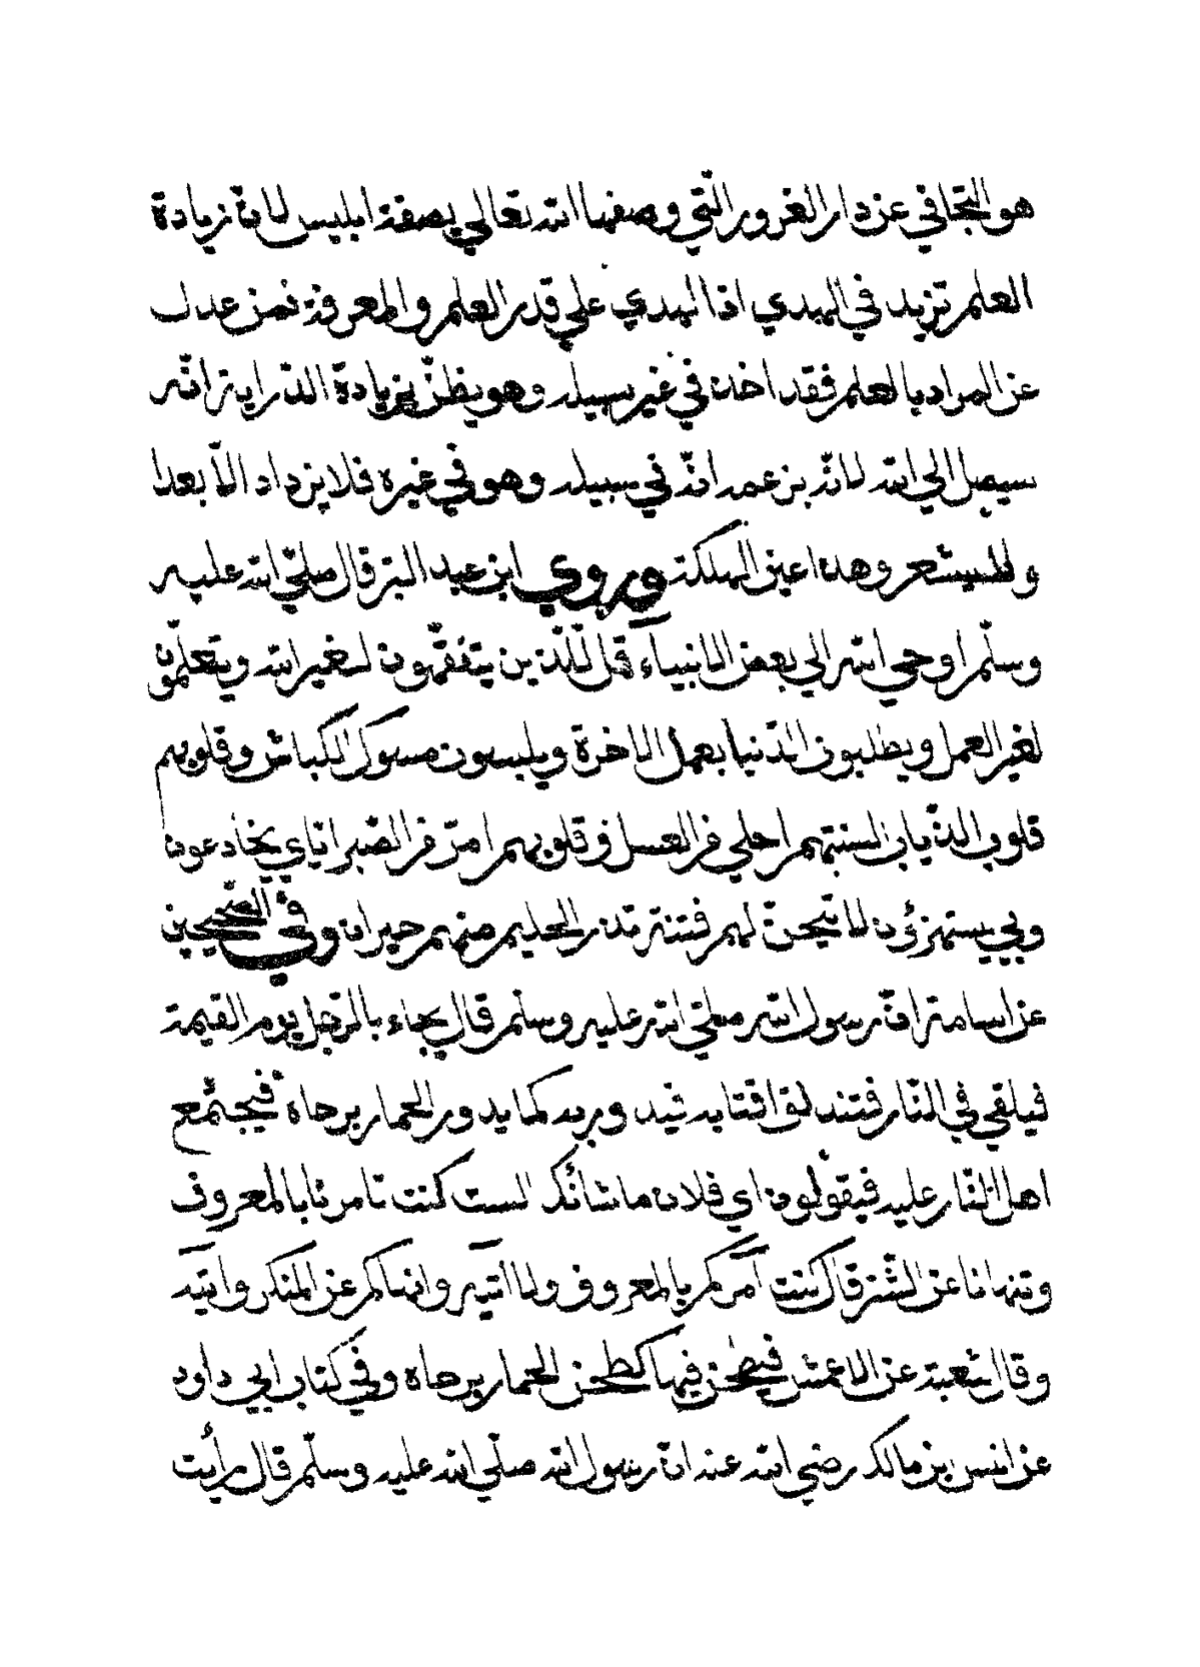 هو التجافي عن دار الغرور التي وصفها الله تعالي بصفة ابليس لان زيادة
العلم تزيد في الهدي اذا الهدي علي قدر العلم والمعرفة فمن عدل
عن المراد بالعلم فقد اخذ في غير سبيله وهو يظنّ بزيادة الدّراية انّه
سيصل الي الله لانّه بزعمه انّه في سبيله وهو في غيره فلا يزداد الاّ بعدا
ولا يستشعر وهذا عين الهلكة وروي ابن عبد البرّ قال صليّ الله عليه
وسلّم اوحي الله الي بعض الانبياء قل للّذين يتفقّهون لغير الله ويتعلّمون
لغير العمل ويطلبون الدّنيا بعمل الاخرة ويلبسون مسوك الكباش وقلوبهم
قلوب الذّياب السنتهم احلي من العسل وقلوبهم امرّ من الصّبر ايّاي يخادعون
وبي يستهزؤن لاتيحنّ لهم فتنة تذر الحليم منهم حيران وفي الصّحيحين
عن اسامة انّ رسول الله صليّ الله عليه وسلّم قال يجاء بالرّجل يوم القيمة
فيلقي في النّار فتندلق اقتابه فيدور به كما يدور الحمار برحاه فيجتمع
اهل النّار عليه فيقولون اي فلان ما شأنك الست كنت تامرنا بالمعروف
وتنهانا عن الشّرّ قال كنت آمركم بالمعروف ولا اتيه وانهاكم عن المنكر وآتيه
وقال شعبة عن الاعمش فيطحن فيها كطحن الحمار برحاه وفي كتاب ابي داود
عن انس بن مالك رضي الله عنه انّ رسول الله صلّي الله عليه وسلّم قال رأيت